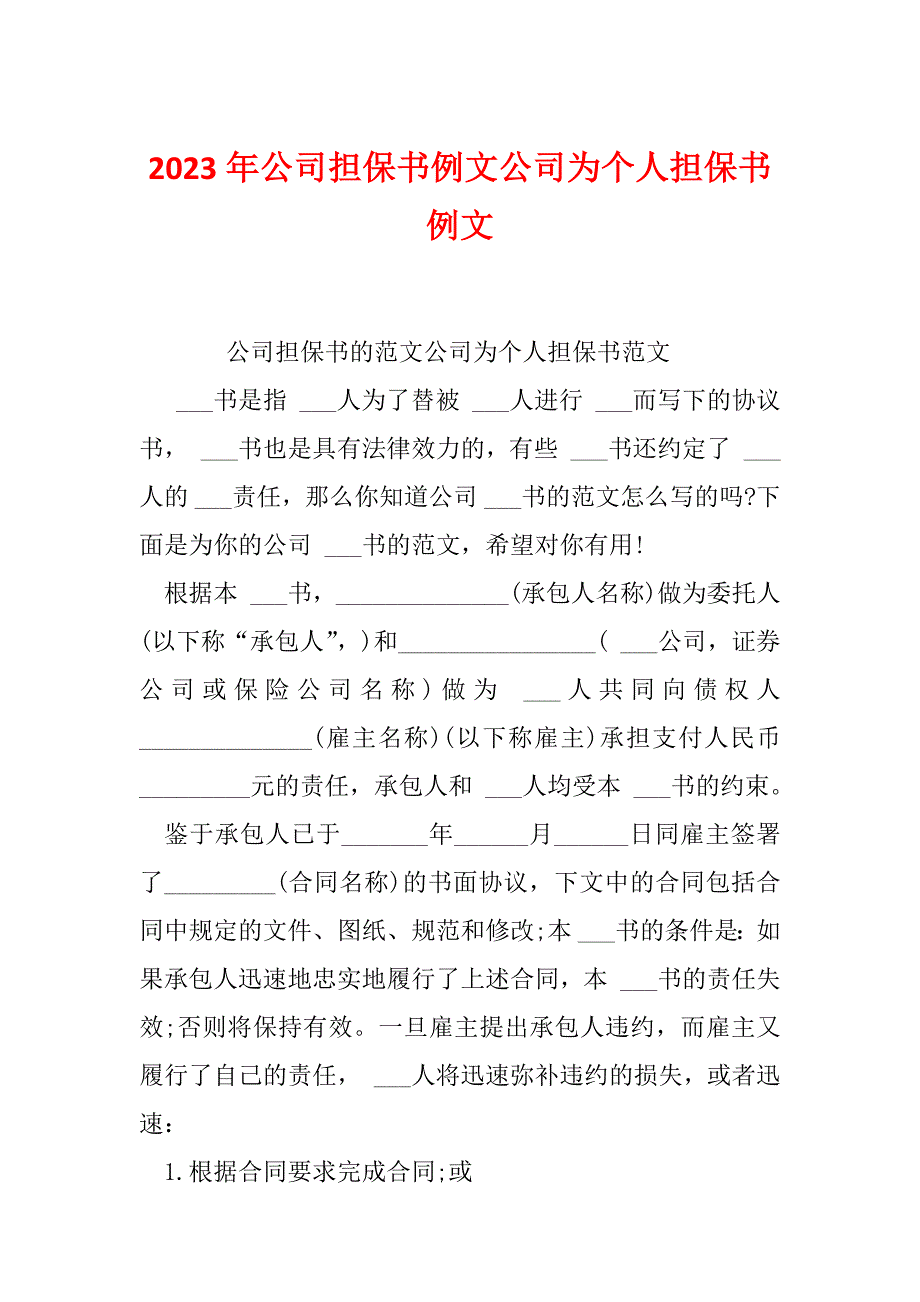 2023 年公司担保书例文公司为个人担保书
例文
公司担保书的范文公司为个人担保书范文
___书是指 ___人为了替被 ___人进行 ___而写下的协议
书， ___书也是具有法律效力的，有些 ___书还约定了 ___
人的 ___责任，那么你知道公司 ___书的范文怎么写的吗?下
面是为你的公司 ___书的范文，希望对你有用!
根据本 ___书，______________(承包人名称)做为委托人
(以下称“承包人”，)和________________( ___公司，证券
公司或保险公司名称)做为 ___人共同向债权人
______________(雇主名称)(以下称雇主)承担支付人民币
_________元的责任，承包人和 ___人均受本 ___书的约束。
鉴于承包人已于_______年______月______日同雇主签署
了_________(合同名称)的书面协议，下文中的合同包括合
同中规定的文件、图纸、规范和修改;本 ___书的条件是：如
果承包人迅速地忠实地履行了上述合同，本 ___书的责任失
效;否则将保持有效。一旦雇主提出承包人违约，而雇主又
履行了自己的责任， ___人将迅速弥补违约的损失，或者迅
速：
1.根据合同要求完成合同;或